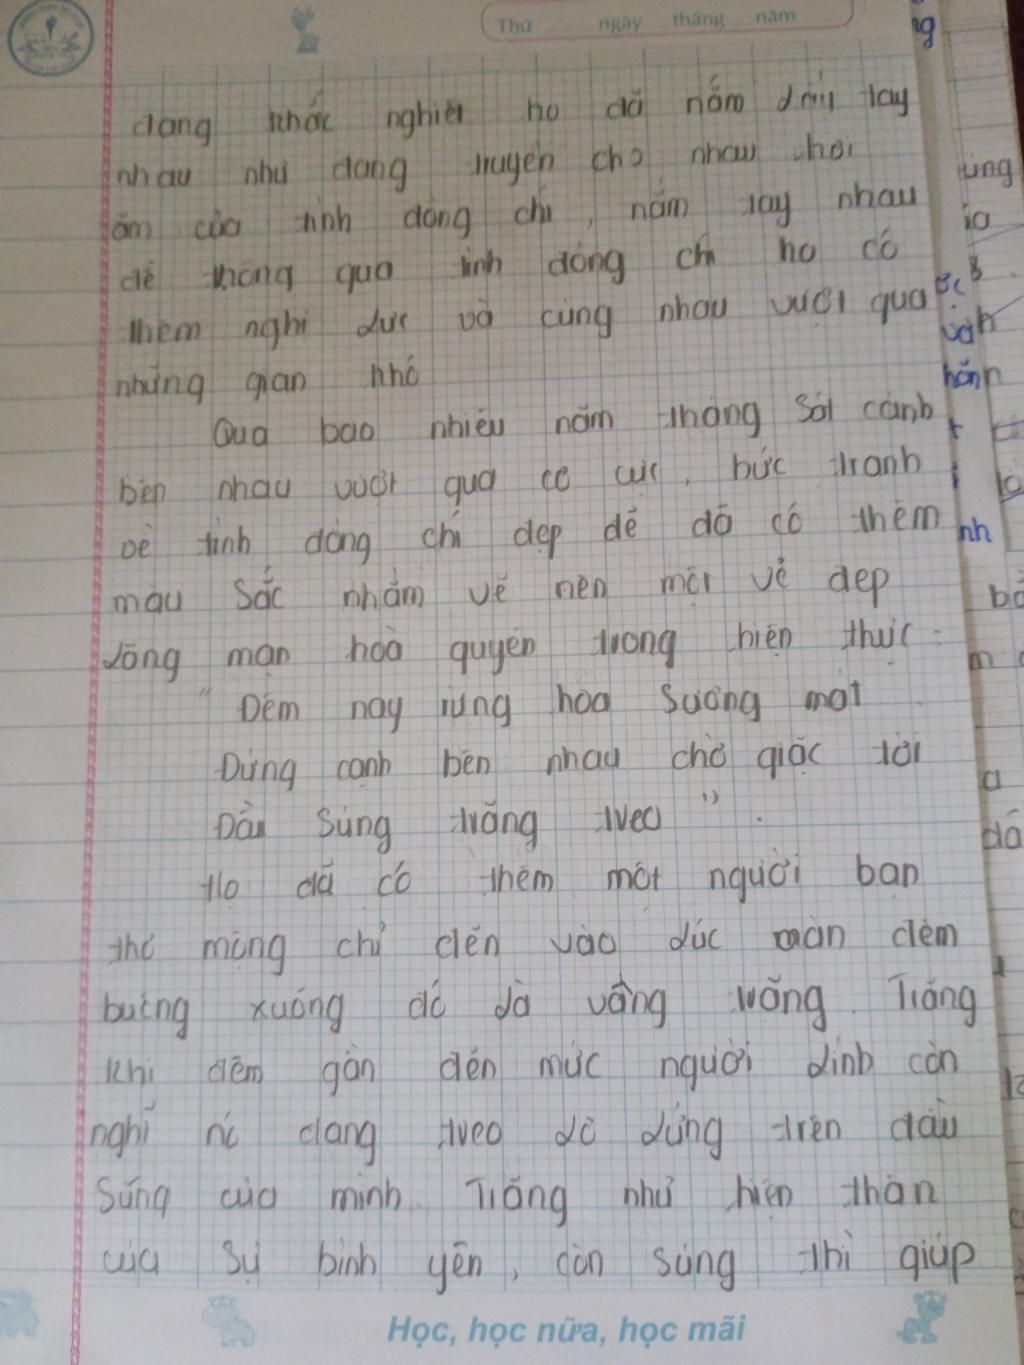 Thứ ngày tháng năm
đang khắc nghiệt họ đã nắm lấy tay
nhau như đang truyền cho nhau hơi
ấm của tình đồng chí, nắm tay nhau
để thông qua tình đồng chí họ có
thêm nghị lực và cùng nhau vượt qua
những gian khó
Qua bao nhiêu năm tháng sát cánh
bên nhau vượt qua cơ cực, bức tranh
về tình đồng chí đẹp đẽ đã có thêm
màu sắc nhằm vẽ nên một vẻ đẹp
lãng mạn hoà quyện trong hiện thực
"Đêm nay rừng hoa sương mat
Đứng cạnh bên nhau chờ giặc tới
Đầu súng trăng treo".
Họ đã có thêm một người bạn
thơ mộng chỉ đến vào lúc màn đêm
buông xuống đó là vầng trăng. Trăng
khi đêm gần đến mức người lính còn
nghĩ nó đang treo lơ lửng trên đầu
súng của mình. Trăng như hiện thân
của sự bình yên, còn súng thì giúp
Học, học nữa, học mãi